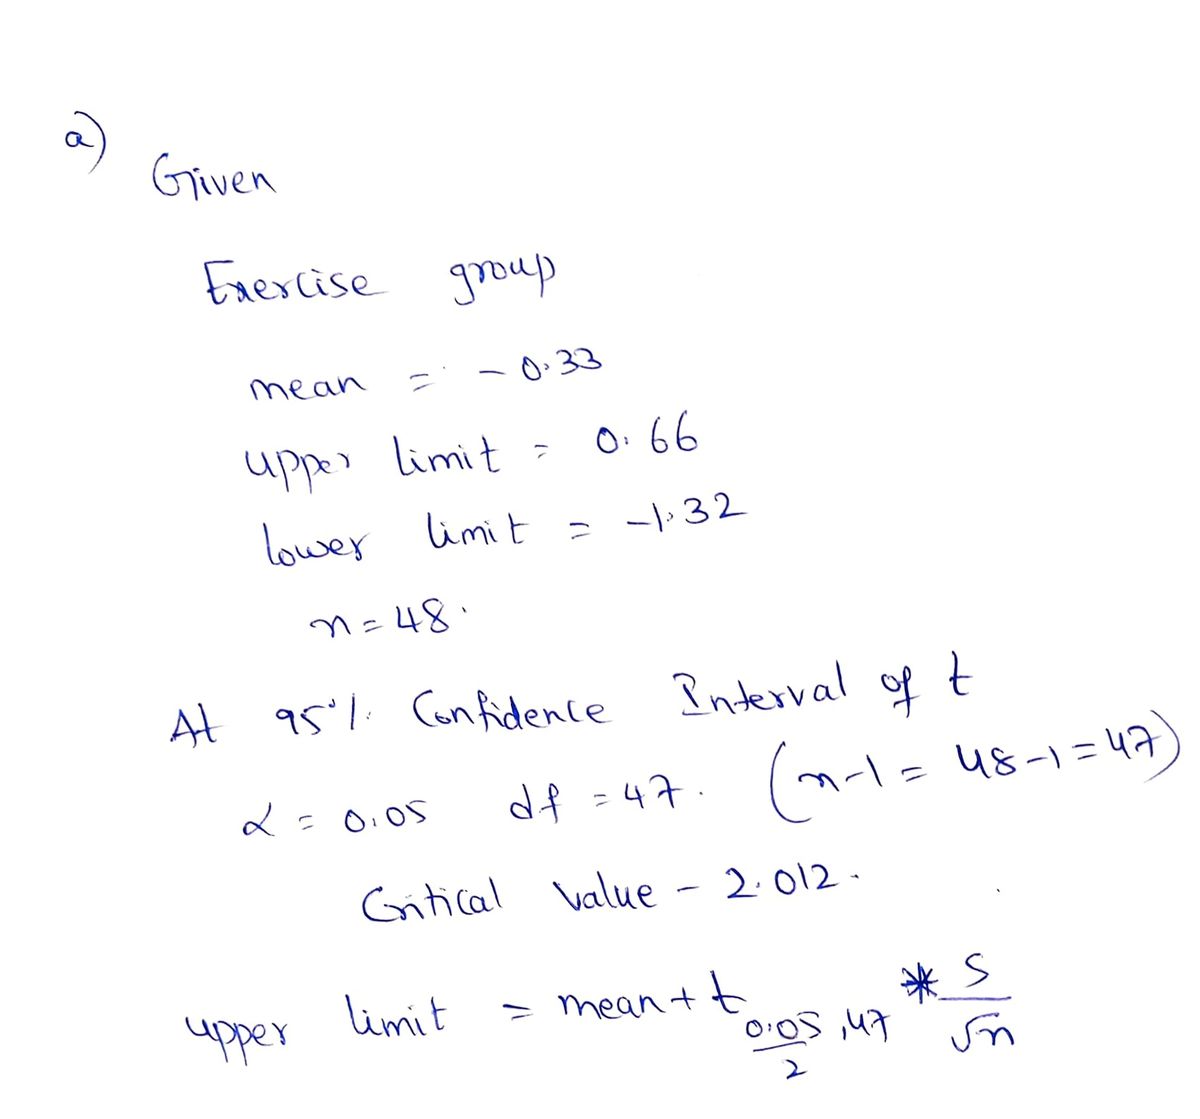 a)
Given
Exercise group
mean = - 0.33
upper limit = 0.66
lower limit = -1.32
n = 48.
At 95% Confidence Interval of t
α = 0.05 df = 47. (n-1 = 48-1 = 47)
Critical value - 2.012.
upper limit = mean + t_{0.05/2, 47} * S/√n